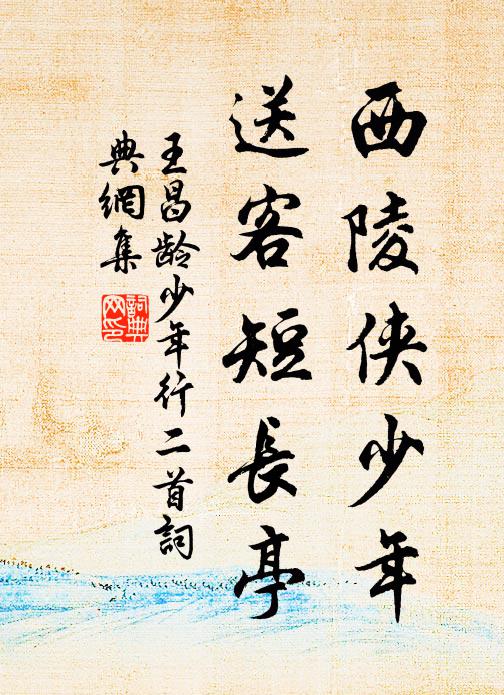 西陵侠少年
送客短長亭
王昌龄少年行二首詞
典網集
詞典
网印